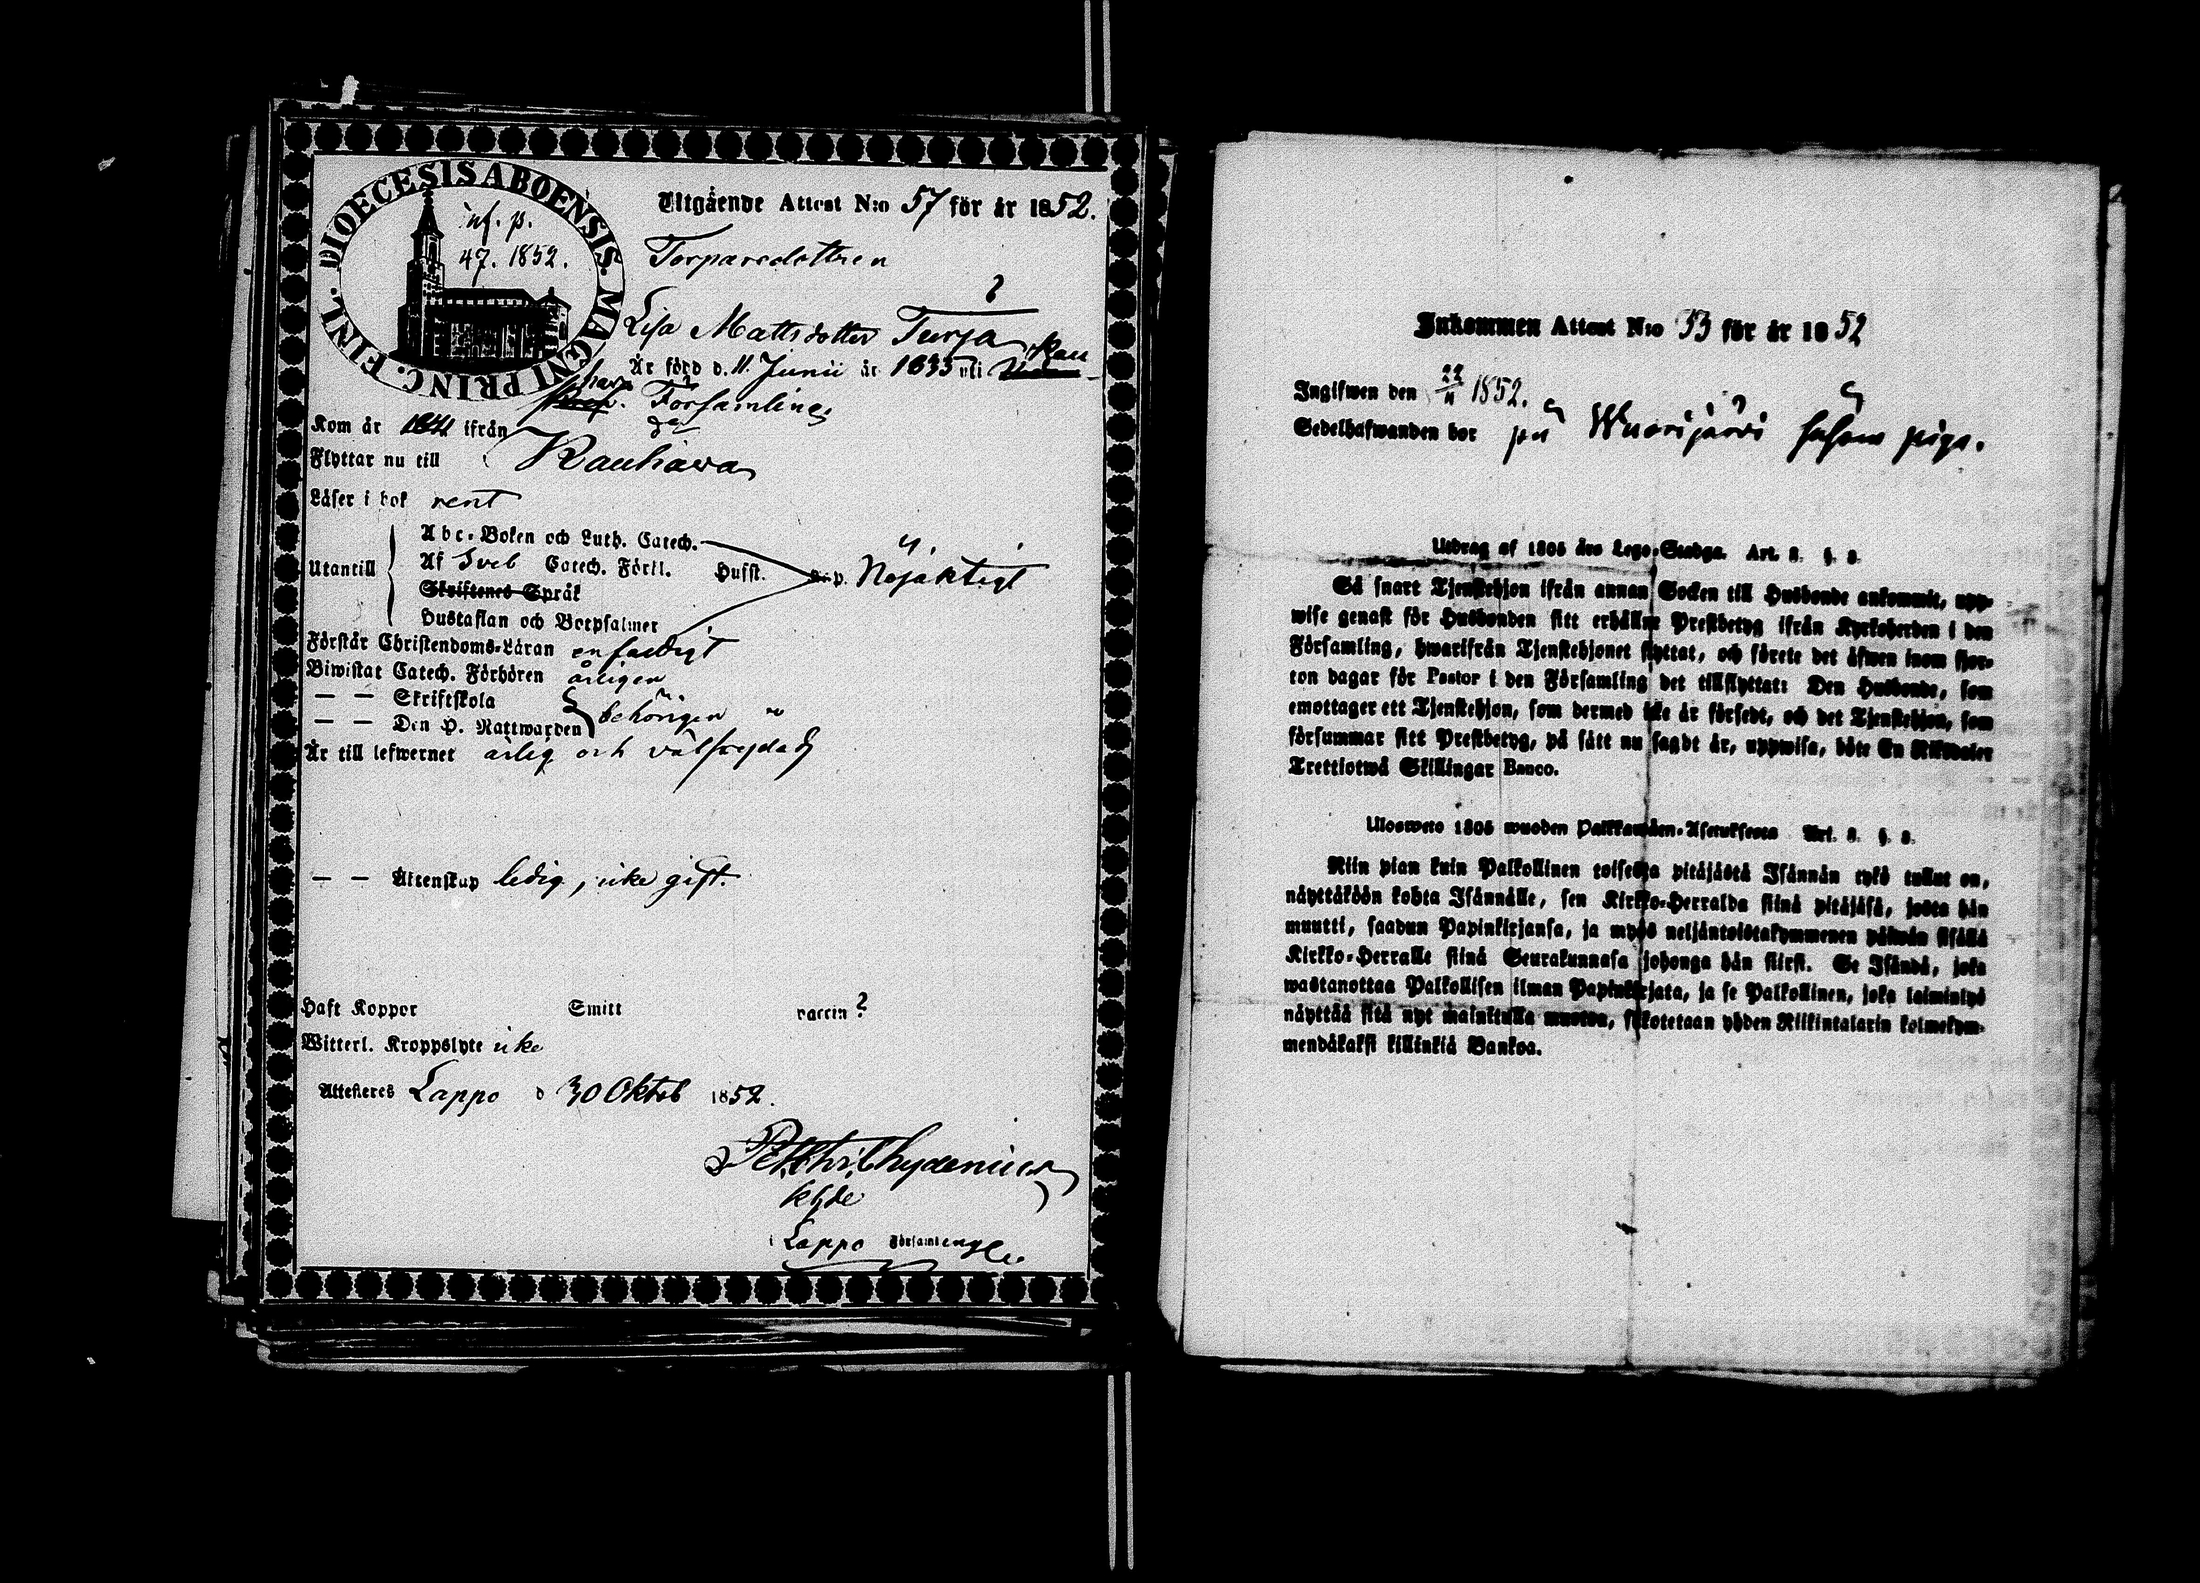 DIOECESIS ABOENSIS. MAGNI PRINC. FINL.
inf. p.
47. 1852.
Utgående Attest N:o 57 för år 1852.
Torparedottren
?
Lisa Mattsdotter Turja
Är född d. 11. Junii år 1835 uti Kau
hava Församling
Kom år 1841 ifrån
Flyttar nu till Kauhava
Läser i bok rent
Utantill
Abc-Boken och Luth. Catech.
Af Sveb Catech. Förkl. Husst. Nöjaktigt
Skriftenes Språk
Hustaflan och Botpsalmer
Förstår Christendoms-Läran enfaldigt
Biwistat Catech. Förhören årligen
— — Skriftskola
— — Den H. Nattwarden behörigen
Är till lefwernet ärlig och välfrejdad
— — Äktenskap ledig, icke gift.
Haft Koppor Smitt vaccin ?
Witterl. Kroppslyte icke
Attesteres Lappo d 30 Oktob 1852.
i Lappo Församling
Inkommen Attest N:o 53 för år 1852
Ingifwen den 22/11 1852.
Sedelhafwanden bor på Wuorijärvi såsom piga.
Utdrag af 1805 års Lego-Stadga. Art. 8. §. 8.
Så snart Tjenstehjon ifrån annan Socken till Husbonde ankommit, upp-
wise genast för Husbonden sitt erhållne Prestbetyg ifrån Kyrkoherden i den
Församling, hwarifrån Tjenstehjonet flyttat, och förete det äfwen inom fjor-
ton dagar för Pastor i den Församling det tillflyttat: Den Husbonde, som
emottager ett Tjenstehjon, som dermed icke är försedt, och det Tjenstehjon, som
försummar sitt Prestbetyg, på sätt nu sagdt är, uppwisa, böte En Riksdaler
Trettiotwå Skillingar Banco.
Uloswето 1805 wuoden Palkkawäen-Asetuksesta Art. 8. §. 8.
Niin pian kuin Palkollinen toisesta pitäjästä Isännän tykö tullut on,
näyttäköön kohta Isännälle, sen Kirkko-Herralda siinä pitäjäsä, josta hän
muutti, saadun Papinkirjansa, ja myös neljäntoistakymmenen päiwän sisällä
Kirkko-Herralle siinä Seurakunnasa johonga hän siirsi. Se Isändä, joka
wastanottaa Palkollisen ilman Papinkirjata, ja se Palkollinen, joka laiminlyö
näyttää sitä nyt mainitulla muotoa, sakotetaan yhden Riikintalarin kolmekym-
mendäkaksi killinkiä Bankoa.